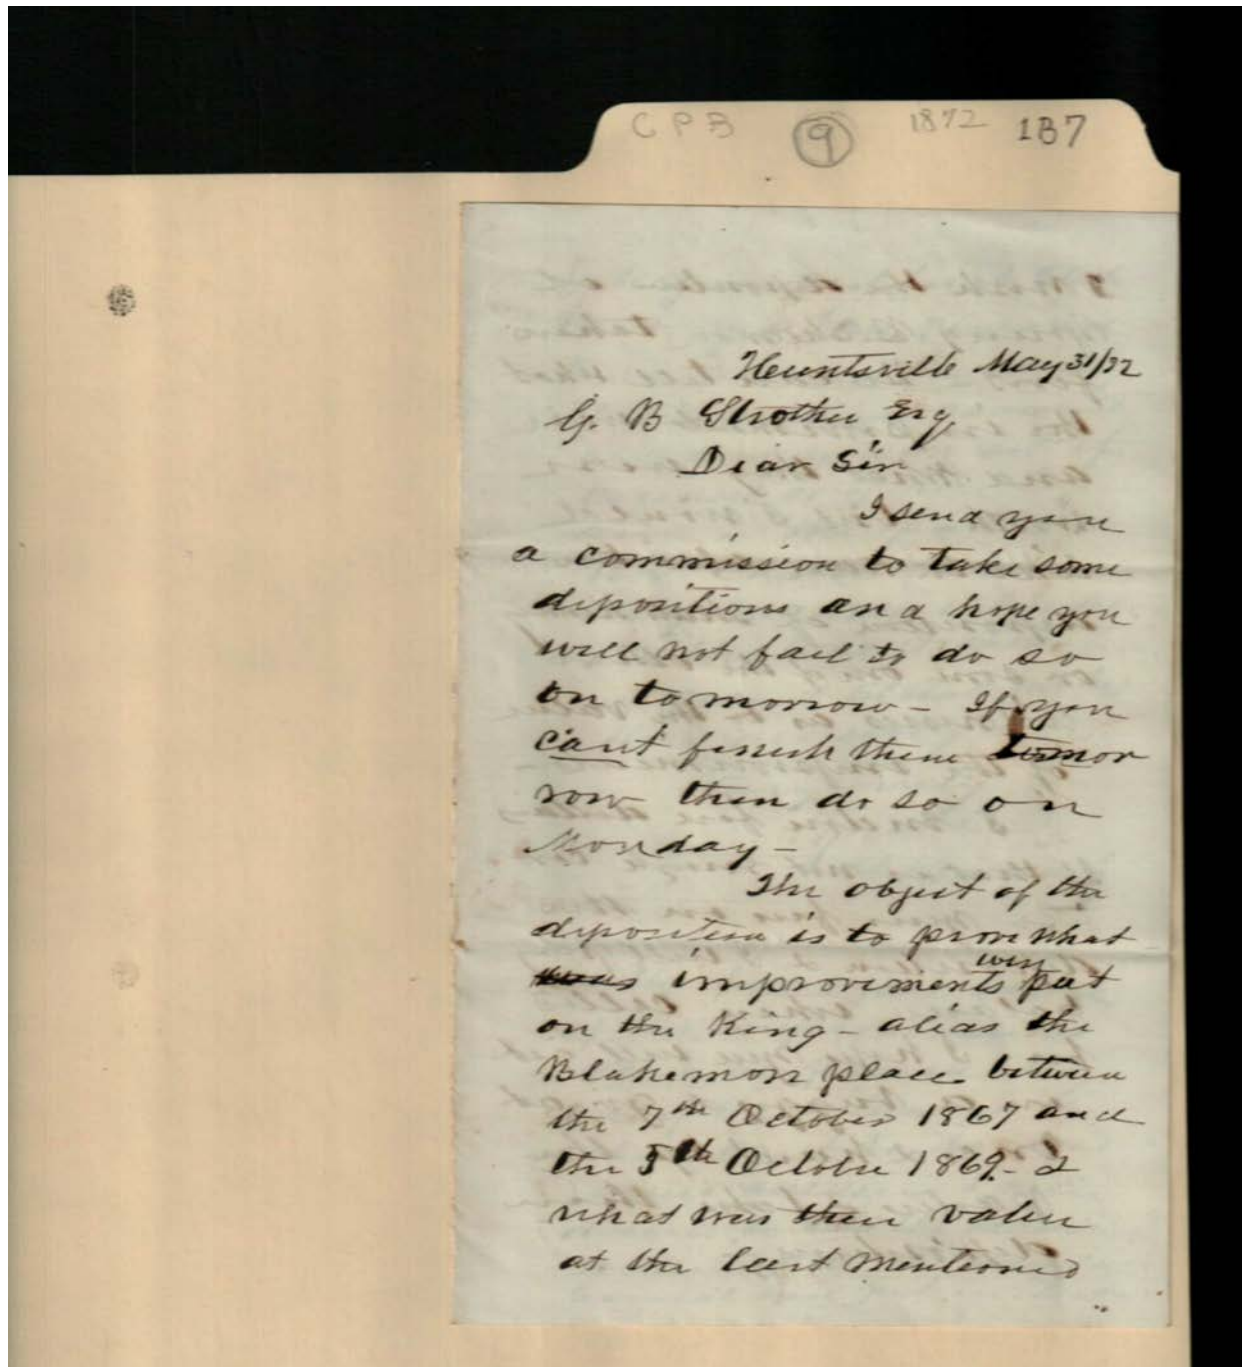 CPB 9 1872 1B7
Huntsville May 31/72
G. B Strother Esq
Dear Sir
I send you
a commission to take some
depositions and hope you
will not fail to do so
on tomorrow - If you
can't finish them tomor
row then do so on
Monday -
The object of the
deposition is to prove what
was improvements were put
on the King - alias the
Blakemore place between
the 7th October 1867 and
the 5th October 1869 - &
what was their value
at the last mentioned